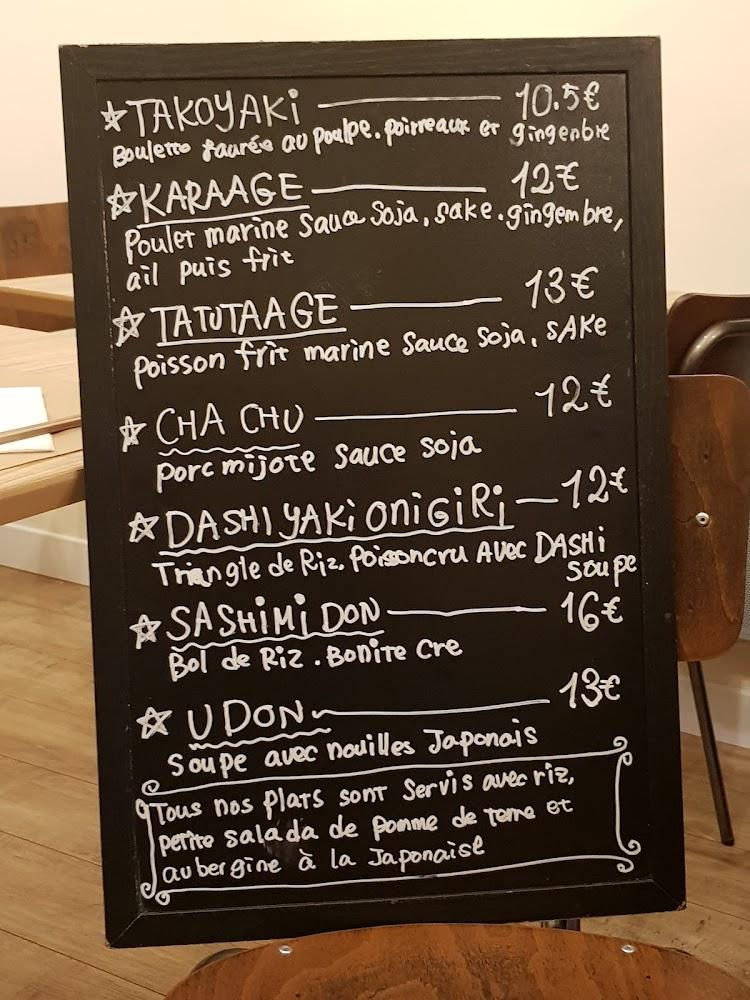 ☆ TAKOYAKi — 10.5€
Boulette faurée au poulpe. poirreaux et gingenbre
☆ KARAAGE — 12€
Poulet marine sauce soja, sake. gingembre,
ail puis frit
☆ TATUTAAGE — 13€
Poisson frit marine sauce soja, SAKe
☆ CHA CHU — 12€
porc mijote sauce soja
☆ DASHi YAKi OniGiRi — 12€
Triangle de Riz. Poisson cru AVec DASHi
soupe
☆ SASHiMi DON — 16€
Bol de Riz. Bonite cre
☆ UDON — 13€
Soupe avec nouilles Japonais
Tous nos plats sont servis avec riz,
petite salada de pomme de terre et
aubergine à la Japonaise